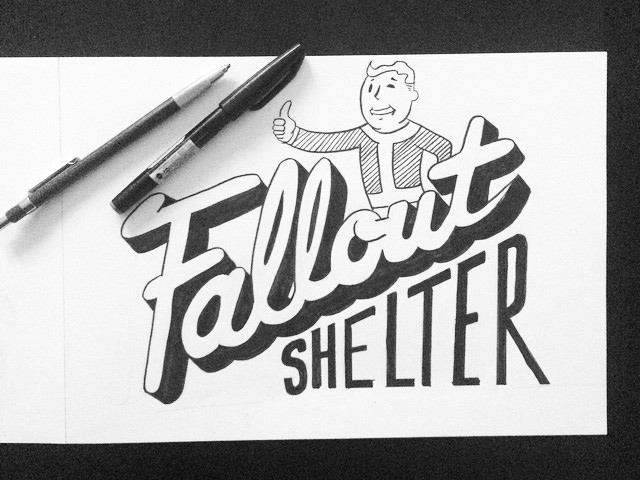 Fallout
SHELTER